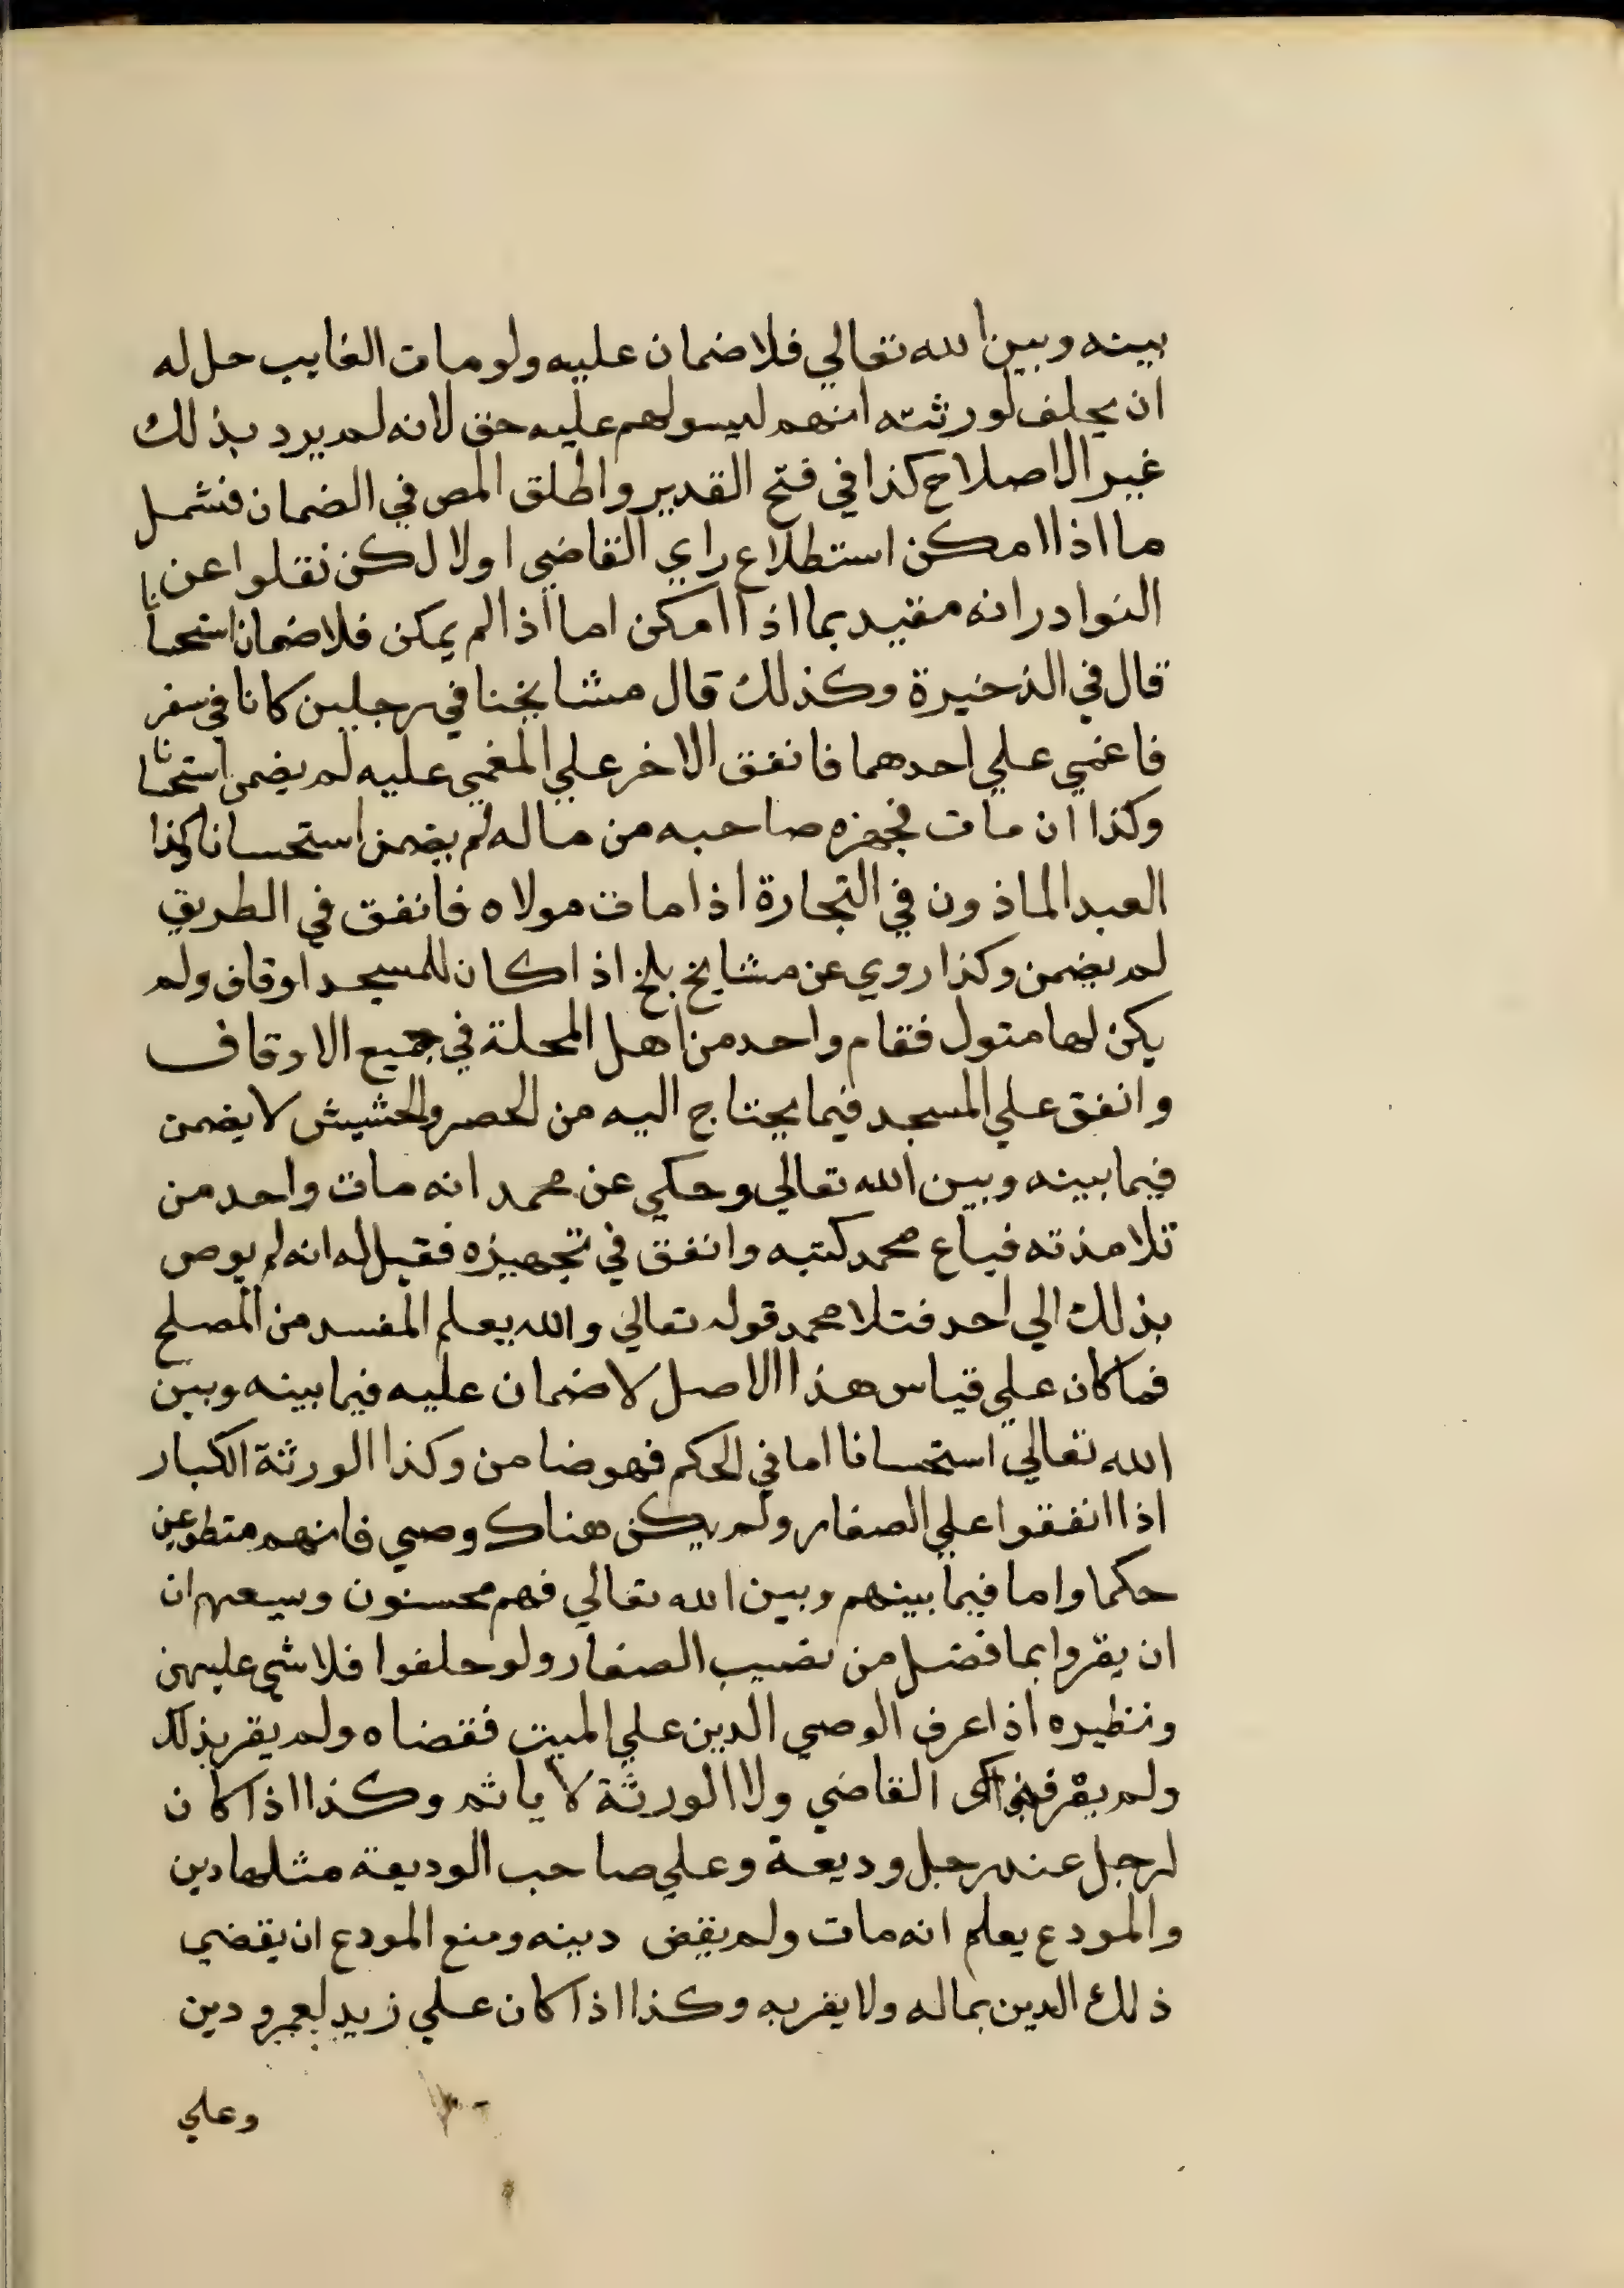 بينه وبين الله تعالي فلا ضمان عليه ولو مات الغايب حل له
ان يحلف لورثته انهم ليسو لهم عليه حق لانه لم يرد بذلك
غير الاصلاح كذا في فتح القدير واطلق المص في الضمان فشمل
ما اذا امكن استطلاع راي القاضي اولا لكن نقلوا عن
النوادر انه مقيد بما اذا امكن اما اذا لم يمكن فلا ضمان استحسانا
قال في الذخيرة وكذلك قال مشايخنا في رجلين كانا في سفر
فاغمي علي احدهما فانفق الاخر علي المغمي عليه لم يضمن استحسانا
وكذا ان مات فجهزه صاحبه من ماله لم يضمن استحسانا وكذا
العبد الماذون في التجارة اذا مات مولاه فانفق في الطريق
لم يضمن وكذا روي عن مشايخ بلخ اذا كان للمسجد اوقاف ولم
يكن لها متول فقام واحد من اهل المحلة في جميع الاوقاف
وانفق علي المسجد فيما يحتاج اليه من الحصر والحشيش لا يضمن
فيما بينه وبين الله تعالي وحكي عن محمد انه مات واحد من
تلامذته فباع محمد كتبه وانفق في تجهيزه فقيل له انه لم يوص
بذلك الي احد فتلا محمد قوله تعالي والله يعلم المفسد من المصلح
فما كان علي قياس هذا الاصل لا ضمان عليه فيما بينه وبين
الله تعالي استحسانا اما في الحكم فهو ضامن وكذا الورثة الكبار
اذا انفقوا علي الصغار ولم يكن هناك وصي فانهم متطوعين
حكما واما فيما بينهم وبين الله تعالي فهم محسنون ويسعهم ان
ان يقروا بما فضل من نصيب الصغار ولو حلفوا فلا شي عليهن
ونظيره اذا عرف الوصي الدين علي الميت فقضاه ولم يقر بذلك
ولم يعرف القاضي ولا الورثة لا ياثم وكذا اذا كان
لرجل عند رجل وديعة وعلي صاحب الوديعة مثلها دين
والمودع يعلم انه مات ولم يقض دينه ومنع المودع ان يقضي
ذلك الدين بماله ولا يقر به وكذا اذا كان علي زيد لعمرو دين
وعلي